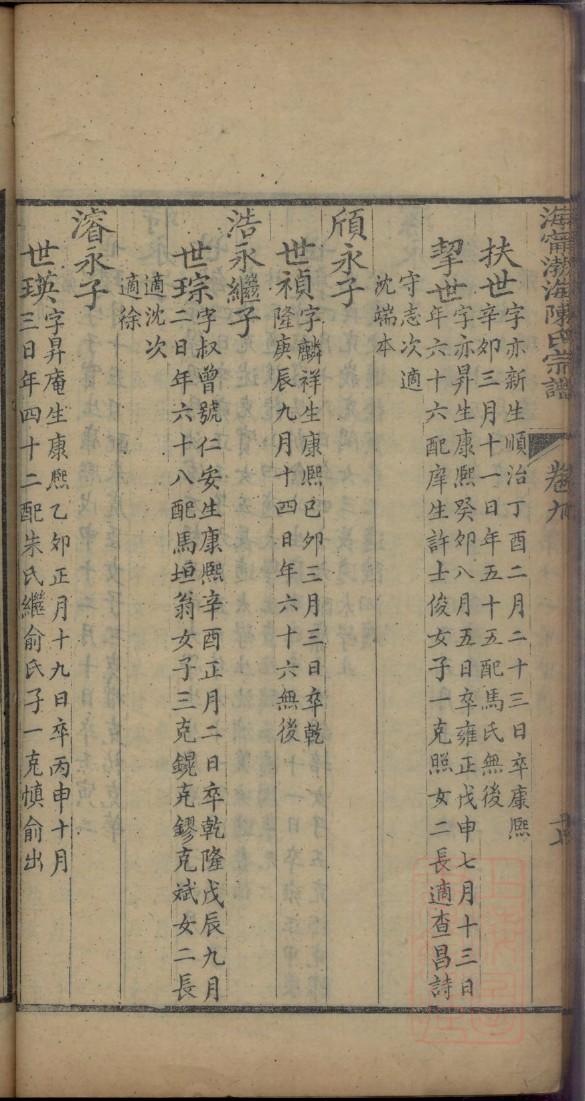 海寧渤海陳氏宗譜
卷九
扶世字亦新生順治丁酉二月二十三日卒康熙
辛卯三月十一日年五十五配馬氏無後
挈世字亦昇生康熙癸卯八月五日卒雍正戊申七月十三日
年六十六配庠生許士俊女子一克照女二長適查昌詩
守志次適
沈端本
頎永子
世禎字麟祥生康熙己卯三月三日卒乾
隆庚辰九月十四日年六十六無後
浩永繼子
世琮字叔曾號仁安生康熙辛酉正月二日卒乾隆戊辰九月
二日年六十八配馬垣翁女子三克錕克鏐克斌女二長
適沈次
適徐
濬永子
世瑛字昇庵生康熙乙卯正月十九日卒丙申十月
三日年四十二配朱氏繼俞氏子一克慎俞出